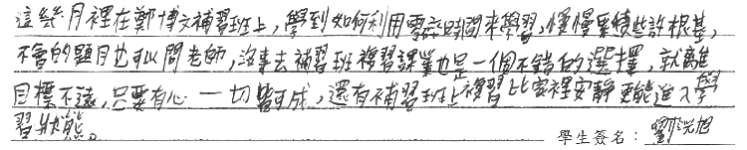 這幾月裡在鄭博文補習班上,學到如何利用零碎時間來學習,慢慢累積些許根基,
不會的題目也可以問老師,沒事去補習班複習課業也是一個不錯的選擇,就離
目標不遠,只要有心一切皆可成,還有補習班上複習比家裡安靜更能進入學
習狀態。
學生簽名:劉 旭